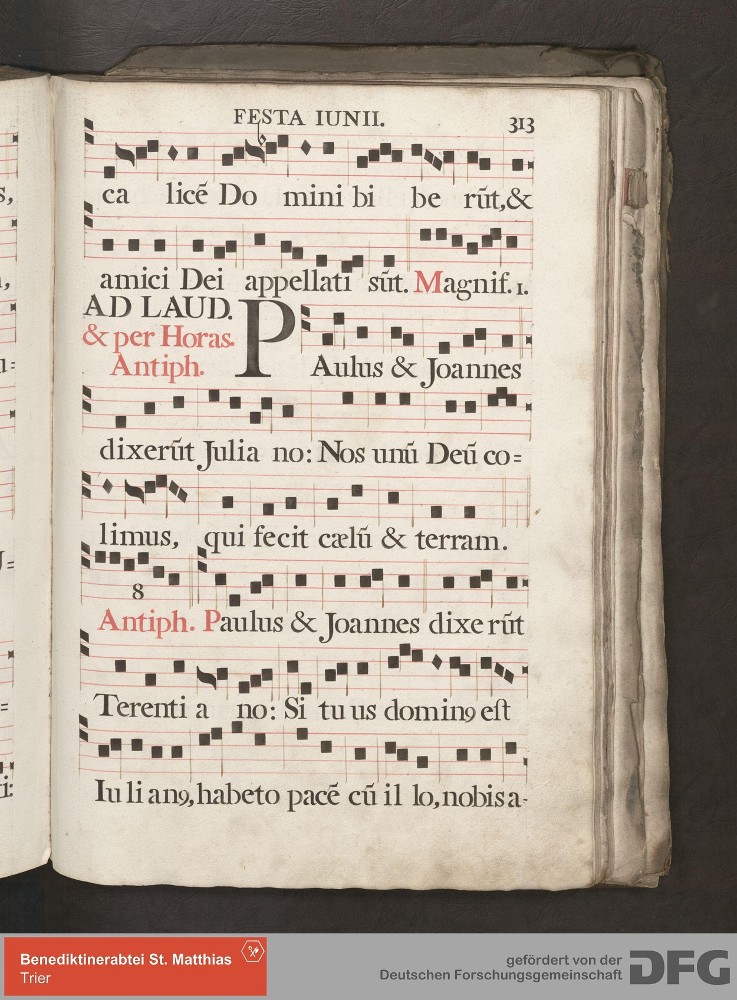 FESTA IUNII. 313
ca licē Do mini bi be rūt,&
amici Dei appellati sūt. Magnif. 1.
AD LAUD.
& per Horas.
Antiph.
PAulus & Joannes
dixerūt Julia no: Nos unū Deū co=
limus, qui fecit cælū & terram.
8
Antiph. Paulus & Joannes dixe rūt
Terenti a no: Si tu us dominꝯ eſt
Iu li anꝯ, habeto pacē cū il lo, nobis a-
Benediktinerabtei St. Matthias
Trier
gefördert von der
Deutschen Forschungsgemeinschaft
DFG